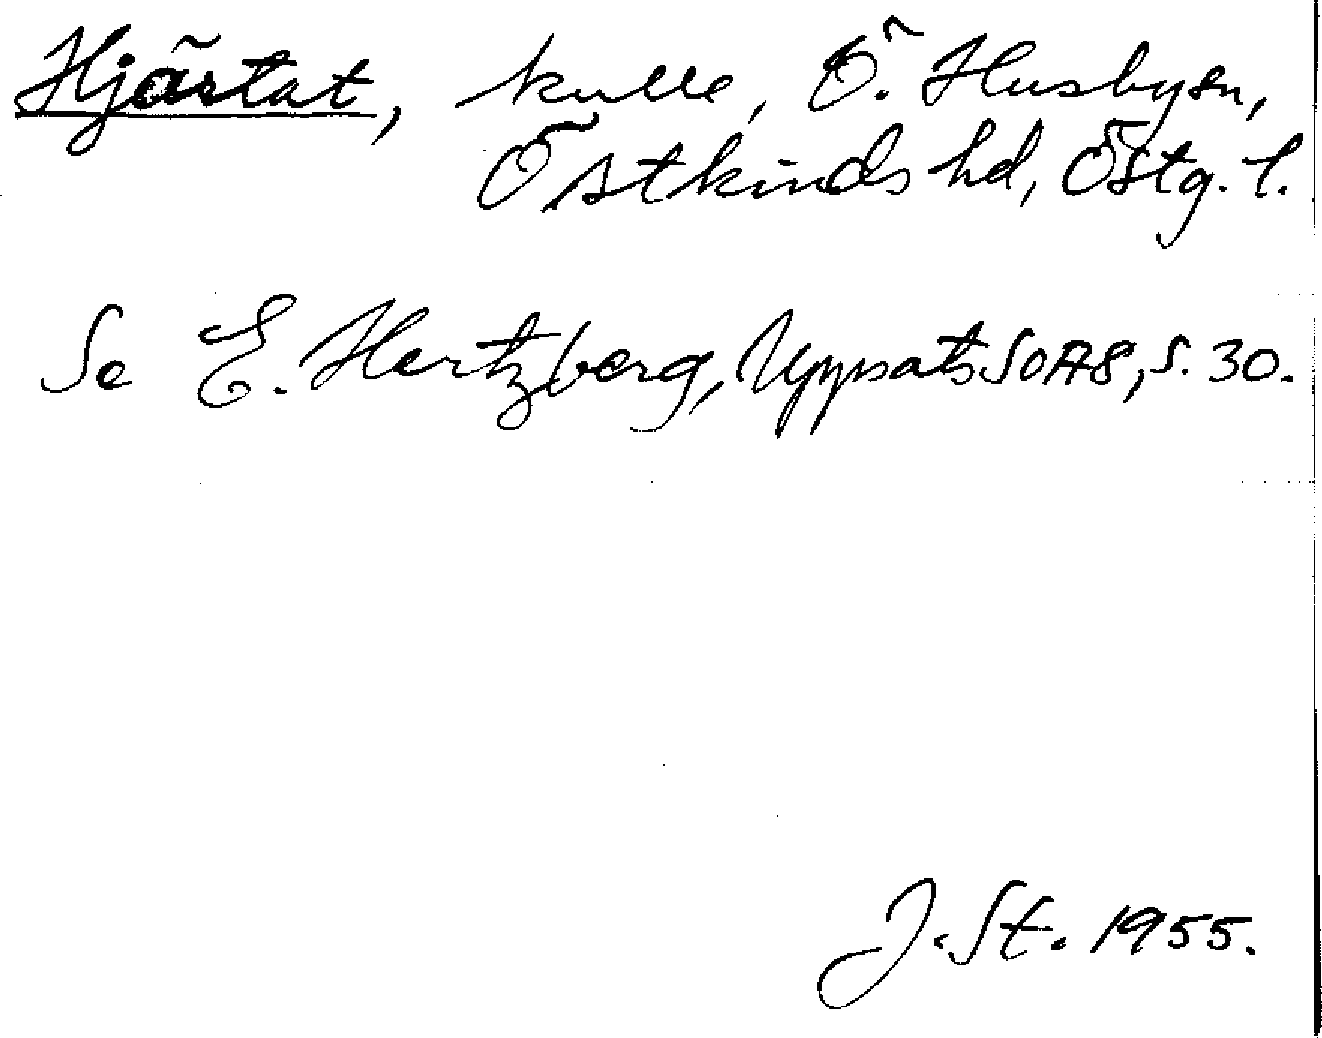 Hjärtat, kulle, Ö. Husby sn,
Östkinds hd, Östg. l.
Se E. Hertzberg, Uppsats SOAS, s. 30.
J. St. 1955.